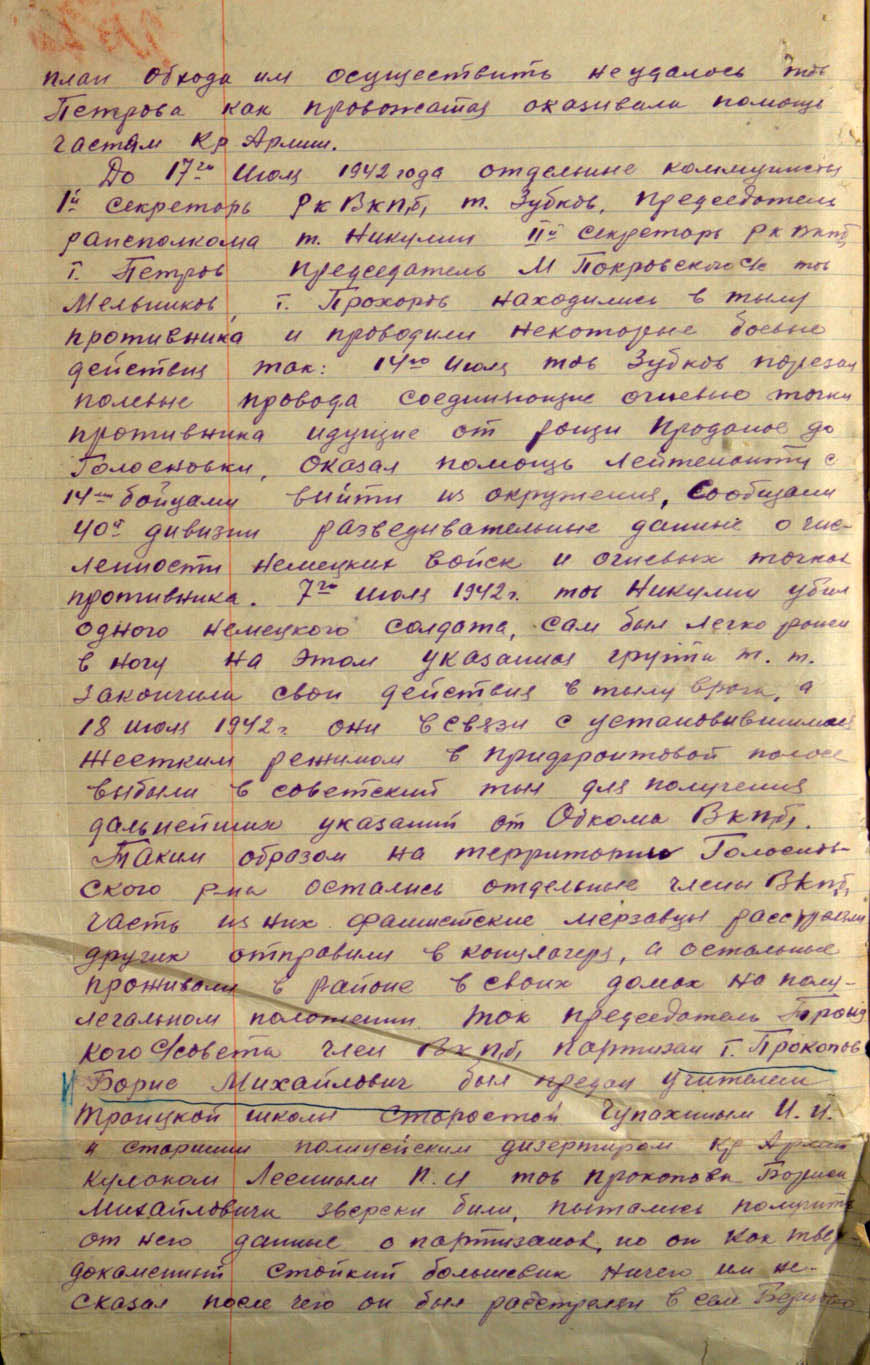 план обхода им осуществить неудалось тов
Петрова как провожатая оказивала помощь
частям Кр Армии.
До 17го Июля 1942 года отдельние коммунисты
1й Секреторь Рк Вкп,б, т. Зубков, председатель
райсполкома т. Никулин IIй секреторь Рк Вкпб,
т. Петров председатель М Покровского С/с тов
Мельников, т. Прохоров находились в тылу
противника и проводили некоторые боевые
действия так: 14го Июля тов Зубков порезал
полевые провода соединяющие огневые точки
противника идущие от рощи Проданое до
Голосновки, Оказал помощь Лейтенанту с
14ю бойцами выйти из окружения, Сообщали
40й дивизии разведывательные данные о чис-
ленности немецких войск и огневых точках
противника. 7го июля 1942г. тов Никулин убил
одного немецкого солдата, сам был легко ранен
в ногу на этом указанная группа т. т.
закончили свои действия в тылу врага, а
18 июля 1942г они в связи с установившимся
жестким режимом в придфронтовой полосе
выбыли в советский тыл для получения
дальнейших указаний от Обкома Вкп,б,.
Таким образом на территорию Голоснов-
ского р-на остались отдельные члены Вкп,б,
часть из них фашистские мерзавцы расстреляли
других отправили в концлагеря, а остальные
проживали в районе в своих домах на полу-
легальном положении так председатель
кого С/совета член Вкп,б, партизан т. Прокопов
Борис Михайлович был предан учителем
Троицкой школы старостой Чупахиным И. И.
и старшим полицейским дизертиром Кр Армии
кулаком Лесным П. И тов Прокопова Бориса
Михайловича зверски били, питались получить
от него данные о партизанах, но он как твер
докаменный стойкий большевик ничего им не-
сказал после чего он был расстрелян в селе